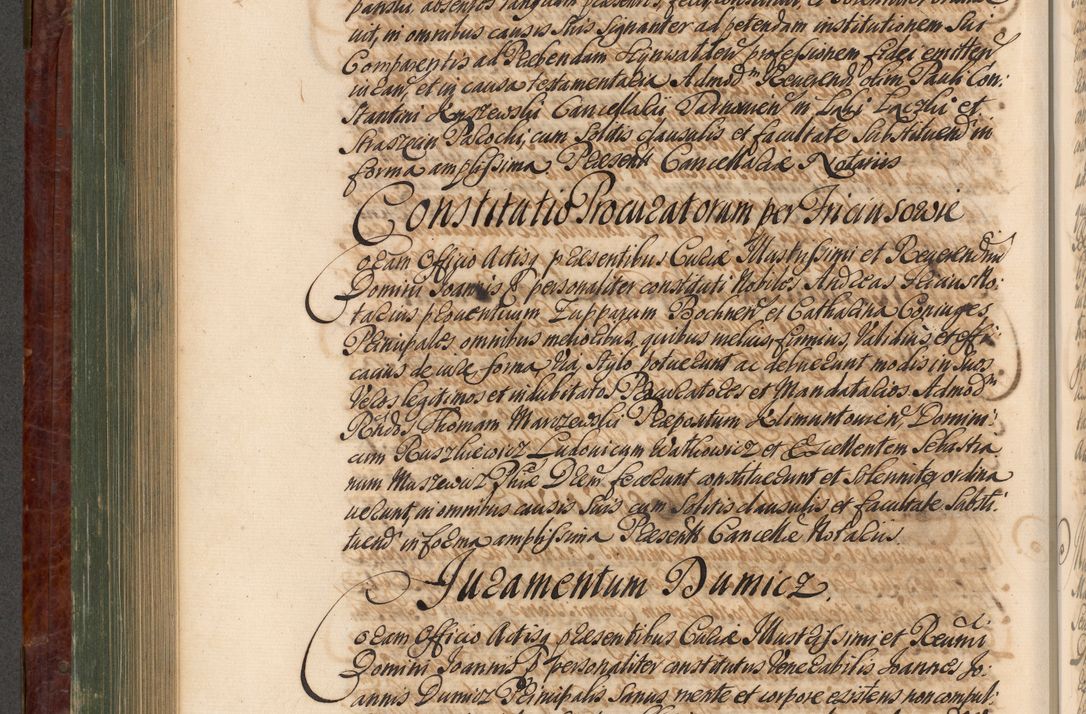 uit, in omnibus causis suis signanter ad petendam institutionem sui
Comparentis ad Præbendam Hynwalden professionem fidei emitten
iu eam, et in causa testamentaria Admodm Reverend olim Pauli Con:
stantini Cancellarii Tarnovien in et
cum solitis clausulis et facultate substituend in
forma amplissima Præsentt Cancellariæ Notarius
Constitutio Procuratorum per Iriciusowie
Coram Officio Actisq præsentibus Curiæ Illustrissimi et Reverendmi
Domini Joannis P personaliter constituti Nobiles Andreas No:
tarius proventuum Zupparum Bochnen et Catharina Coniuges
Principales omnibus melioribus, quibus melius, firmius, validius, et effi:
cacius de iure forma via, stylo potuerunt ac debuerunt modis in suos
veros legitimos et indubitatos Procuratores et Mandatarios Admodm
Rndos Thomam Præpositum Klimuntowien, Domini:
cum Ludovicum Wathowicz et Excellentem Sebastia
num Maszewicz Phiæ Drem fecerunt constituerunt et solenniter ordina
verunt, in omnibus causis suis cum solitis clausulis et facultate substi:
tuend in forma amplissima Præsentt Cancellriæ Notarius.
Juramentum Dumicz.
Coram Officio Actisq præsentibus Curiæ Illustrissimi et Reverendmi
Domini Joannis P personaliter constitutus Venerabilis Joannes Jo:
annis Dumicz Principalis sanus mente et corpore existens non compul: